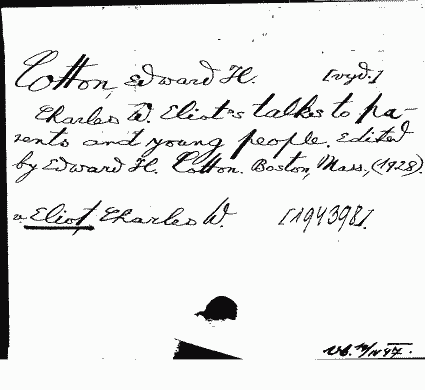 Cotton, Edward H. [vyd.]
Charles W. Eliot's talks to pa-
rents and young people. Edited
by Edward H. Cotton. Boston, Mass., (1928).
v. Eliot, Charles W. [194398].